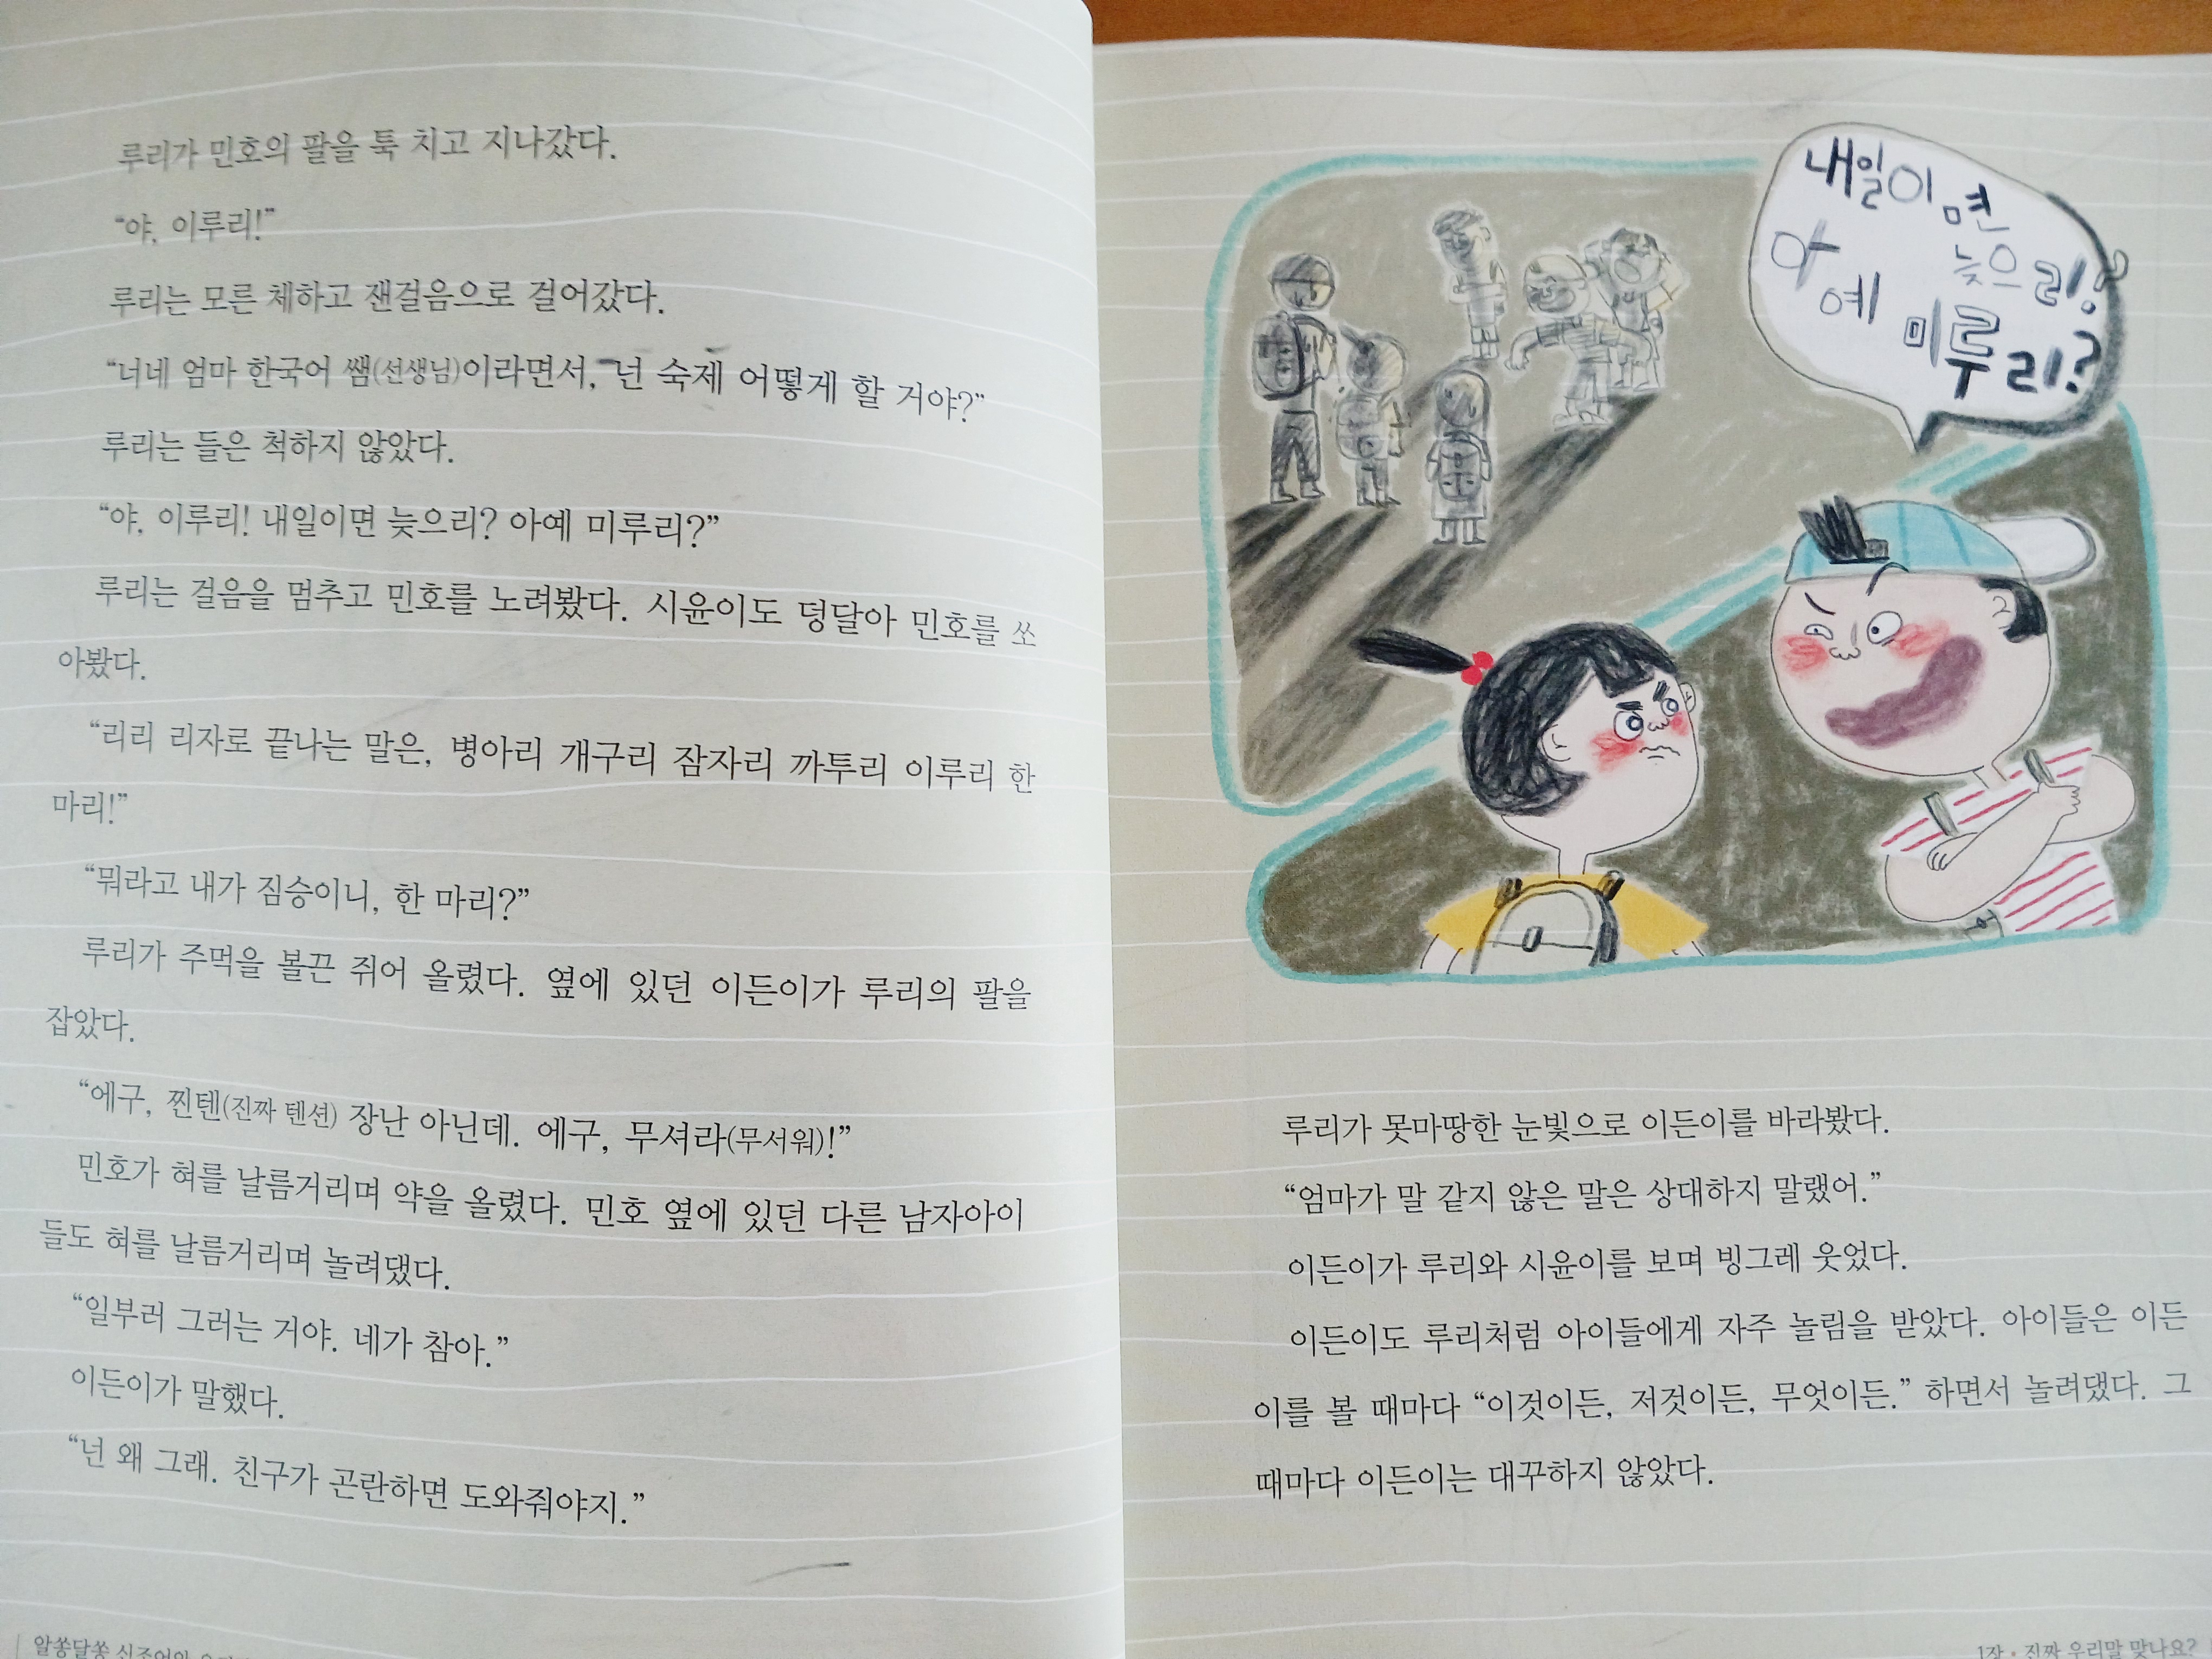 루리가 민호의 팔을 툭 치고 지나갔다.
“야, 이루리!”
루리는 모른 체하고 잰걸음으로 걸어갔다.
“너네 엄마 한국어 쌤(선생님)이라면서, 넌 숙제 어떻게 할 거야?”
루리는 들은 척하지 않았다.
“야, 이루리! 내일이면 늦으리? 아예 미루리?”
루리는 걸음을 멈추고 민호를 노려봤다. 시윤이도 덩달아 민호를 쏘
아봤다.
“리리 리자로 끝나는 말은, 병아리 개구리 잠자리 까투리 이루리 한
마리!”
“뭐라고 내가 짐승이니, 한 마리?”
루리가 주먹을 볼끈 쥐어 올렸다. 옆에 있던 이든이가 루리의 팔을
잡았다.
“에구, 찐텐(진짜 텐션) 장난 아닌데. 에구, 무셔라(무서워)!”
민호가 혀를 날름거리며 약을 올렸다. 민호 옆에 있던 다른 남자아이
들도 혀를 날름거리며 놀려댔다.
“일부러 그러는 거야. 네가 참아.”
이든이가 말했다.
“넌 왜 그래. 친구가 곤란하면 도와줘야지.”
알쏭달쏭 신조어와
내일이면
늦으리?
아예 미루리?
루리가 못마땅한 눈빛으로 이든이를 바라봤다.
“엄마가 말 같지 않은 말은 상대하지 말랬어.”
이든이가 루리와 시윤이를 보며 빙그레 웃었다.
이든이도 루리처럼 아이들에게 자주 놀림을 받았다. 아이들은 이든
이를 볼 때마다 “이것이든, 저것이든, 무엇이든.” 하면서 놀려댔다. 그
때마다 이든이는 대꾸하지 않았다.
1장 • 진짜 우리말 맞나요?